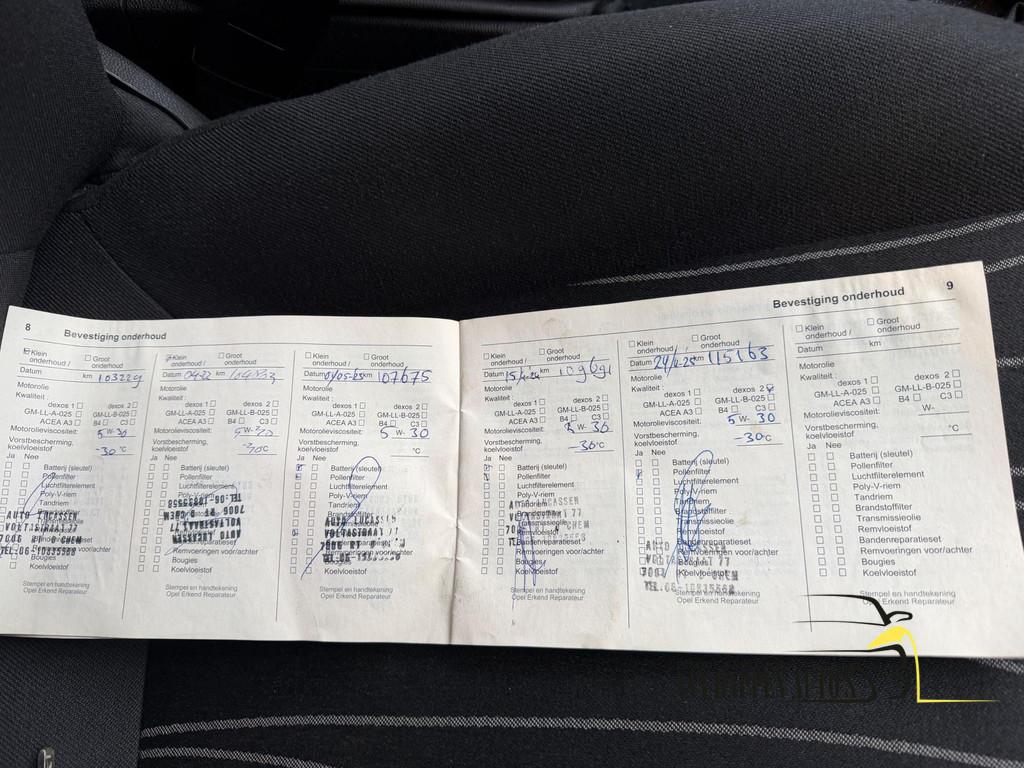 8 Bevestiging onderhoud
Klein onderhoud / Groot onderhoud
Datum km 103229
Motorolie
Kwaliteit :
dexos 1 dexos 2
GM-LL-A-025 GM-LL-B-025
ACEA A3 B4 C3
Motorolieviscositeit: 5 W- 30
Vorstbescherming, koelvloeistof -30 °C
Ja Nee
Batterij (sleutel)
Pollenfilter
Luchtfilterelement
Poly-V-riem
Tandriem
AUTO LUCASSEN
VOLTASTRAAT 77
7006
Stempel en handtekening
Opel Erkend Reparateur
Klein onderhoud / Groot onderhoud
Datum km
Motorolie
Kwaliteit :
dexos 1 dexos 2
GM-LL-A-025 GM-LL-B-025
ACEA A3 B4 C3
Motorolieviscositeit: W-
Vorstbescherming, koelvloeistof °C
Ja Nee
Batterij (sleutel)
Pollenfilter
Luchtfilterelement
Poly-V-riem
Tandriem
AUTO LUCASSEN
VOLTASTRAAT 77
Remvoeringen voor/achter
Bougies
Koelvloeistof
Stempel en handtekening
Opel Erkend Reparateur
Klein onderhoud / Groot onderhoud
Datum km 107675
Motorolie
Kwaliteit :
dexos 1 dexos 2
GM-LL-A-025 GM-LL-B-025
ACEA A3 B4 C3
Motorolieviscositeit: 5 W- 30
Vorstbescherming, koelvloeistof °C
Ja Nee
Batterij (sleutel)
Pollenfilter
Luchtfilterelement
Poly-V-riem
Tandriem
Brandstoffilter
AUTO LUCASSEN
VOLTASTRAAT 77
Remvoeringen voor/achter
Bougies
Koelvloeistof
Stempel en handtekening
Opel Erkend Reparateur
Bevestiging onderhoud 9
Klein onderhoud / Groot onderhoud
Datum km
Motorolie
Kwaliteit :
dexos 1 dexos 2
GM-LL-A-025 GM-LL-B-025
ACEA A3 B4 C3
Motorolieviscositeit: 5 W- 30
Vorstbescherming, koelvloeistof -30 °C
Ja Nee
Batterij (sleutel)
Pollenfilter
Luchtfilterelement
Poly-V-riem
Tandriem
AUTO LUCASSEN
VOLTASTRAAT 77
Transmissieolie
Remvloeistof
Bandenreparatieset
Remvoeringen voor/achter
Bougies
Koelvloeistof
Stempel en handtekening
Opel Erkend Reparateur
Klein onderhoud / Groot onderhoud
Datum 24/4-25 km 115163
Motorolie
Kwaliteit :
dexos 1 dexos 2
GM-LL-A-025 GM-LL-B-025
ACEA A3 B4 C3
Motorolieviscositeit: 5 W- 30
Vorstbescherming, koelvloeistof -30 °C
Ja Nee
Batterij (sleutel)
Pollenfilter
Luchtfilterelement
Poly-V-riem
Tandriem
Brandstoffilter
Transmissieolie
Remvloeistof
Bandenreparatieset
Remvoeringen voor/achter
Bougies
Koelvloeistof
Stempel en handtekening
Opel Erkend Reparateur
Klein onderhoud / Groot onderhoud
Datum km
Motorolie
Kwaliteit :
dexos 1 dexos 2
GM-LL-A-025 GM-LL-B-025
ACEA A3 B4 C3
Motorolieviscositeit: W-
Vorstbescherming, koelvloeistof °C
Ja Nee
Batterij (sleutel)
Pollenfilter
Luchtfilterelement
Poly-V-riem
Tandriem
Brandstoffilter
Transmissieolie
Remvloeistof
Bandenreparatieset
Remvoeringen voor/achter
Bougies
Koelvloeistof
Stempel en handtekening
Opel Erkend Reparateur